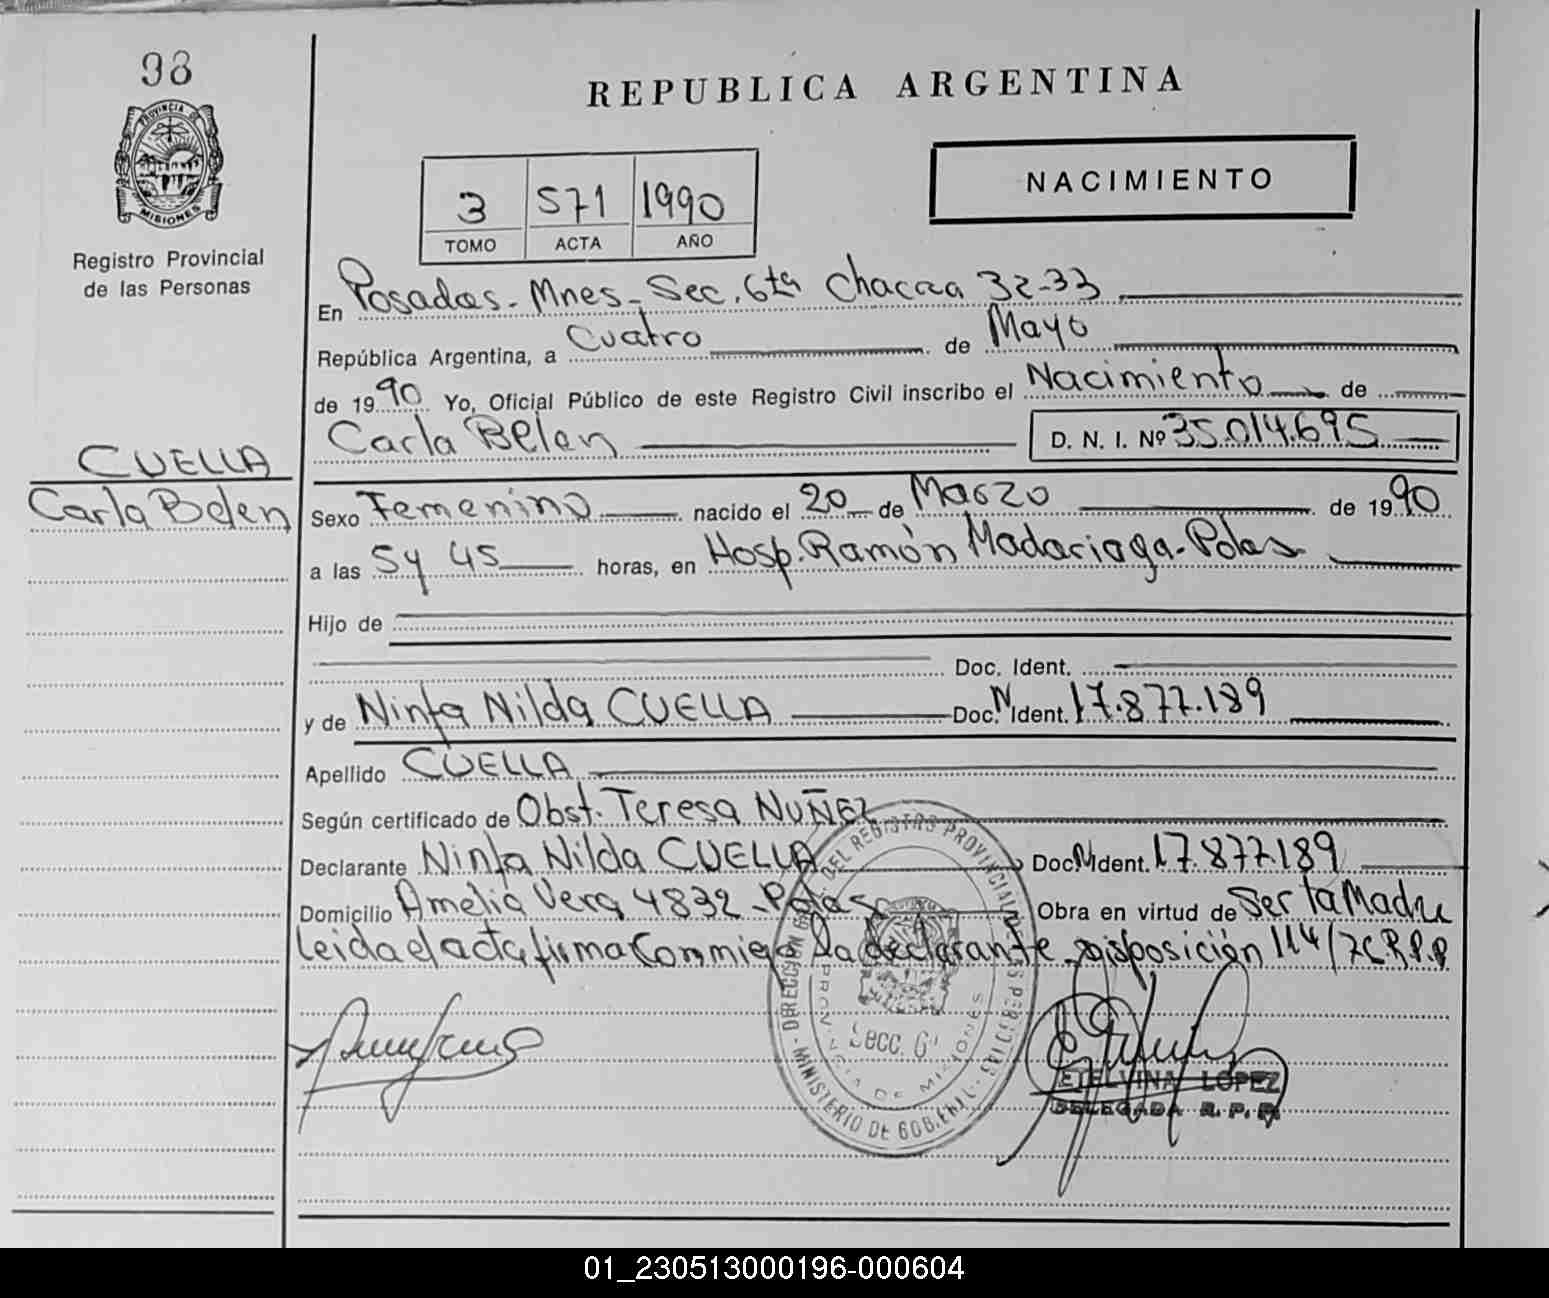 98
PROVINCIA DE
MISIONES
Registro Provincial
de las Personas
REPUBLICA ARGENTINA
3 571 1990
TOMO ACTA AÑO
NACIMIENTO
En Posadas - Mnes - Sec. 6ta Chacra 32-33
República Argentina, a Cuatro de Mayo
de 1990 Yo, Oficial Público de este Registro Civil inscribo el Nacimiento de
Carla Belen D. N. I. Nº 35.014.695
CUELLA
Carla Belen
Sexo Femenino nacido el 20 de Marzo de 1990
a las 5 y 45 horas, en Hosp. Ramón Madariaga - Pdas
Hijo de
Doc. Ident.
y de Ninfa Nilda CUELLA Doc. N Ident. 17.877.189
Apellido CUELLA
Según certificado de Obst. Teresa NUÑEZ
Declarante Ninfa Nilda CUELLA Doc. N Ident. 17.877.189
Domicilio Amelia Vera 4832 - Pdas Obra en virtud de Ser la Madre
leida el acta firma Conmigo la declarante - Disposición 114/76 R.P.P
DIRECCION DEL REGISTRO PROVINCIAL DE LAS PERSONAS
PROVINCIA DE MISIONES
SECC. 6
MINISTERIO DE GOBIERNO
ETELVINA LOPEZ
DELEGADA R. P. P.
01_230513000196-000604